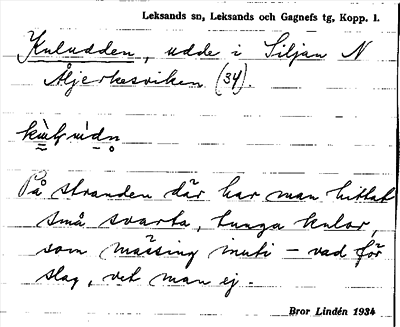 Leksands sn, Leksands och Gagnefs tg, Kopp. l.
Kuludden, udde i Siljan N
Åljerkesviken (34).
På stranden där har man hittat
små svarta, tunga kulor,
som mässing inuti – vad för
slag, vet man ej.
Bror Lindén 1934